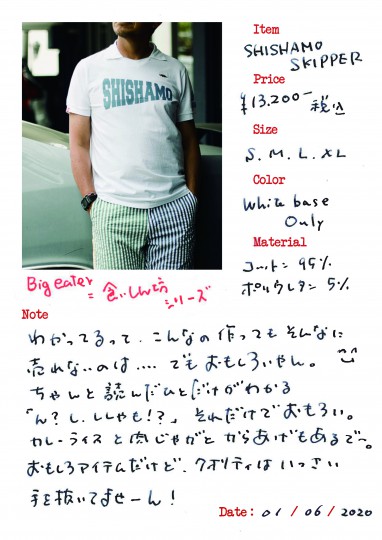 SHISHAMO
Item
SHISHAMO
SKIPPER
Price
¥13.200ー
税込
Size
S. M. L. XL
Color
White base
Only
Material
コットン 95%
ポリウレタン 5%
Big eater
= 食いしん坊
シリーズ
Note
わかってるって、こんなの作ってもそんなに
売れないのは‥‥ でもおもしろいやん。
ちゃんと読んだひとだけがわかる
「ん？し、ししゃも！？」それだけでおもろい。
カレーライスと肉じゃがとからあげもあるで〜。
おもしろアイテムだけど、クオリティはいっさい
手を抜いてませーん！
Date: 01 / 06 / 2020